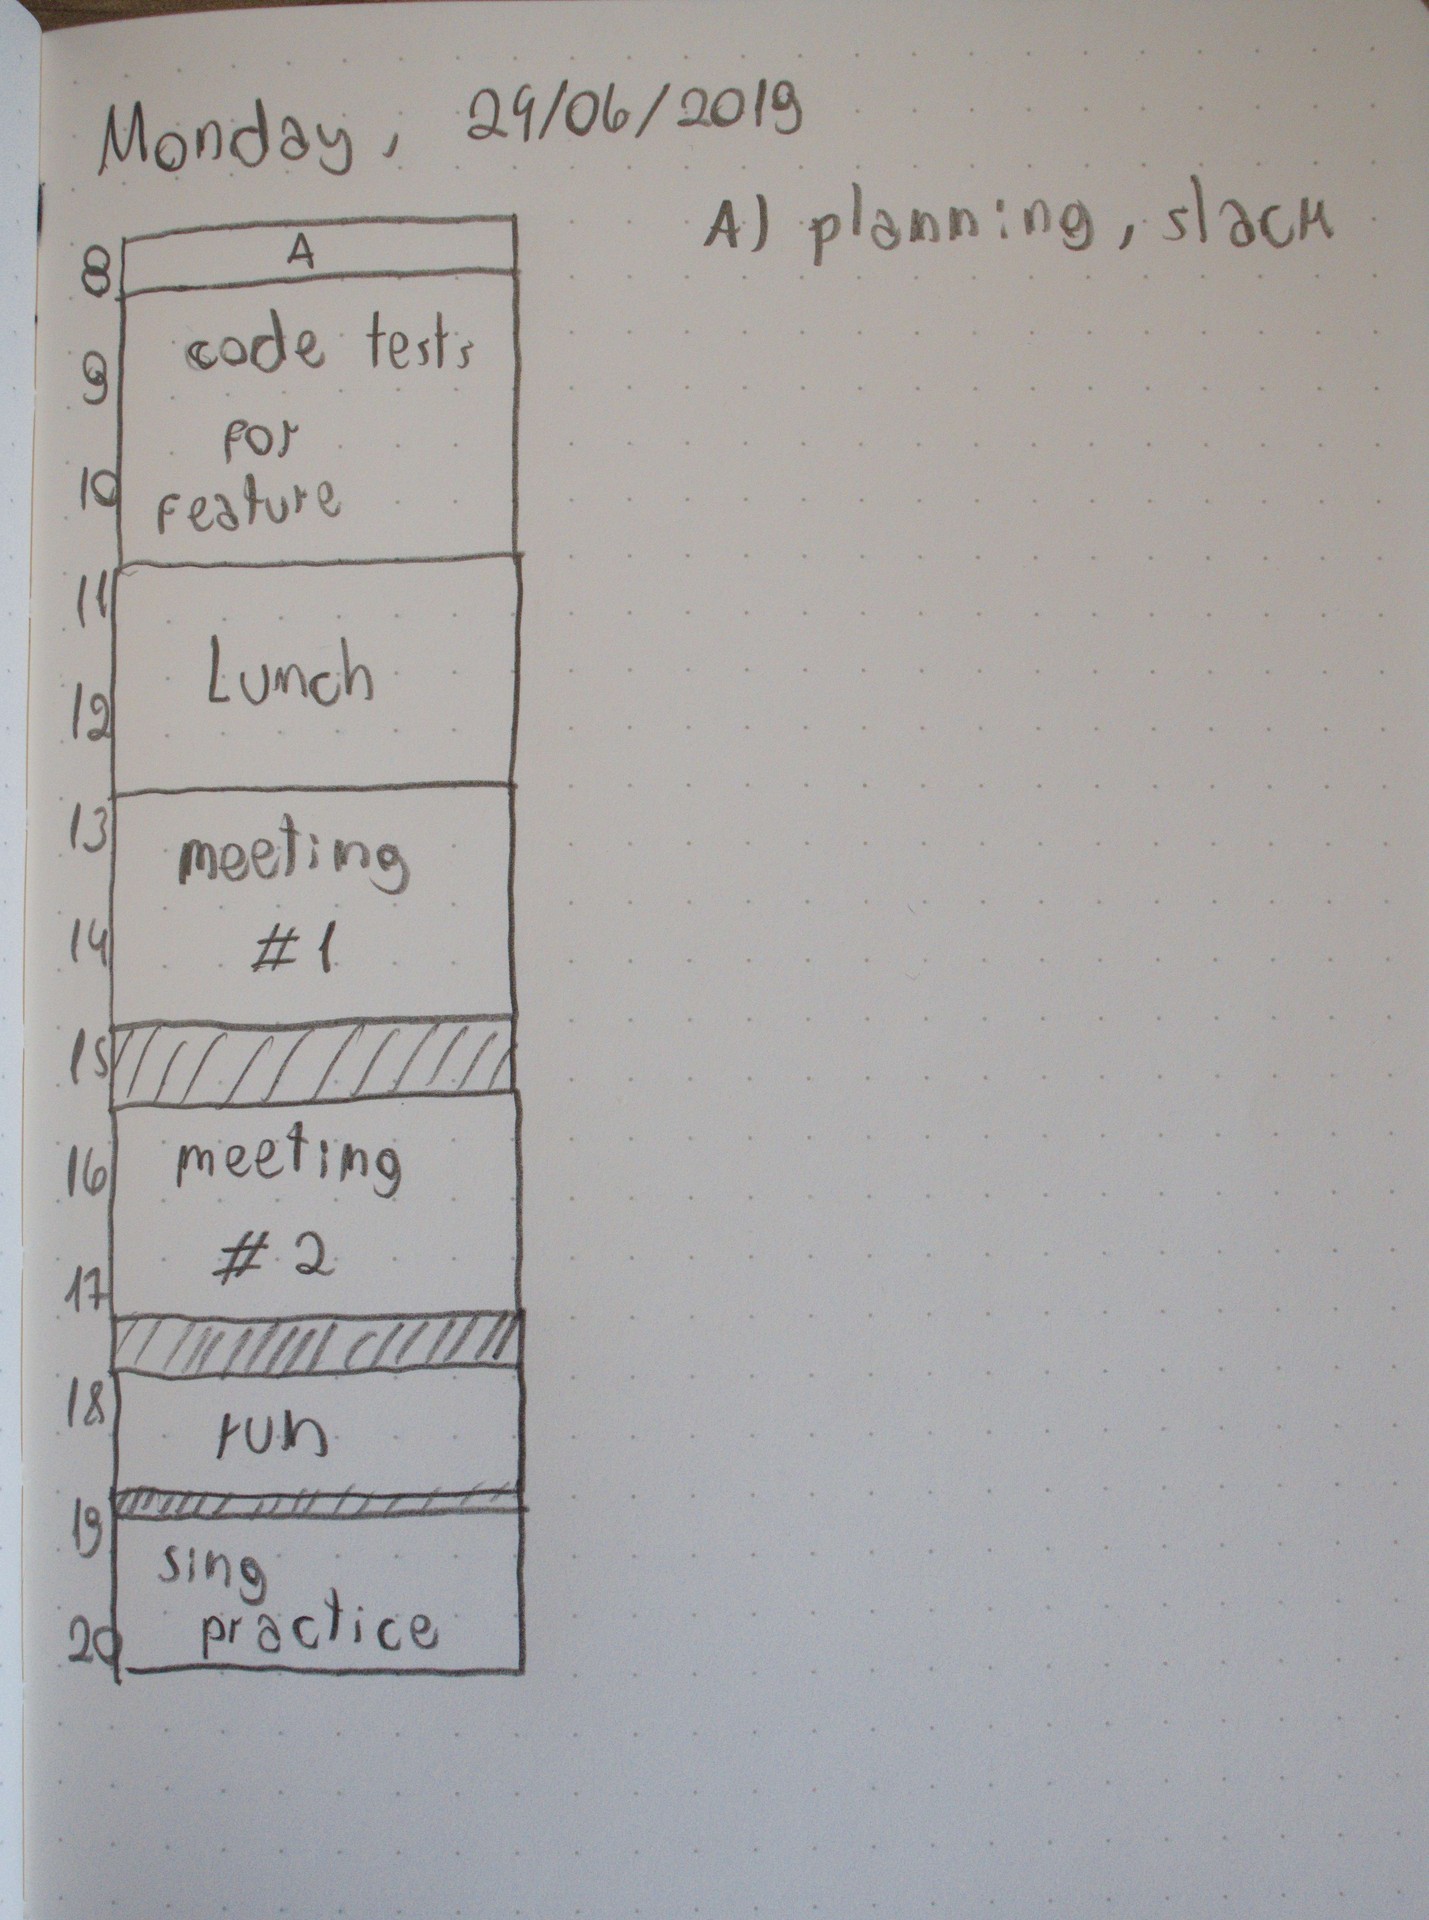 Monday, 24/06/2019
A) planning, slack
8 A
code tests
9
for
10 feature
11
Lunch
12
13 meeting
14 #1
15
16 meeting
17 #2
18 run
19
sing
20 practice